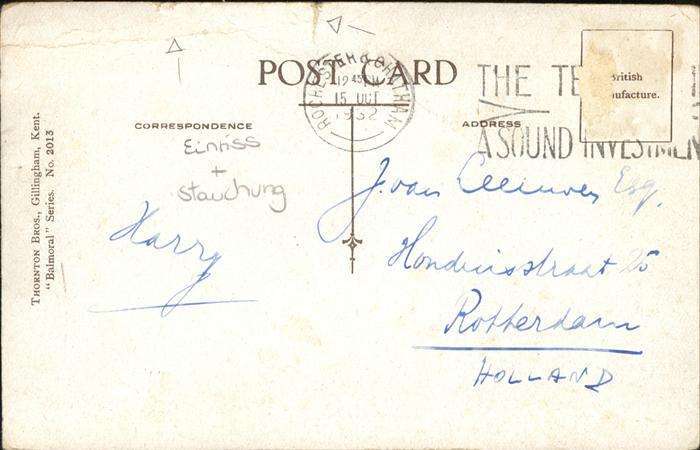 POST CARD
ROCHESTER & CHATHAM
12 45 PM
15 OCT
1932
THE TE
A SOUND INVESTMEN
British
ufacture.
CORRESPONDENCE
ADDRESS
Einriss
+
Stauchung
Harry
J. van Leeuwen Esq.
Hondiusstraat 25
Rotterdam
HOLLAND
THORNTON BROS., Gillingham, Kent.
"Balmoral" Series. No. 2013